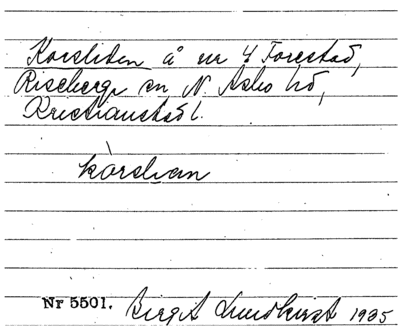 Korsliden å nr 4 Forestad,
Riseberga sn N. Åsbo hd,
Kristianstads l.
kòrslian
Nr 5501. Birgit Lundkvist 1935